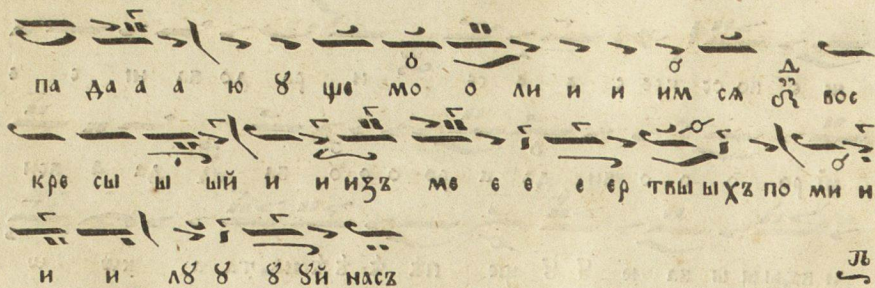 па да а а ю ꙋ ще мо о ли и и им сѧ вос
кре сы ы ый и и изъ ме е е е ер твы ыхъ по ми и
и и лꙋ ꙋ ꙋ ꙋй насъ